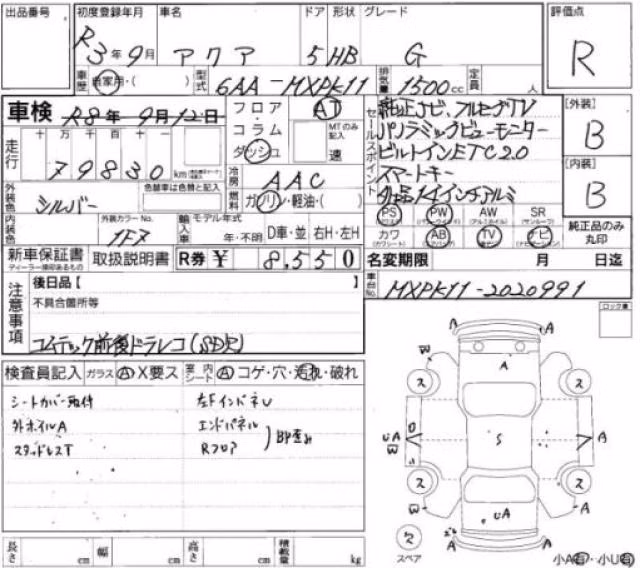 出品番号 初度登録年月 車名 ドア 形状 グレード 評価点
R3年9月 アクア 5 HB G R
車歴 自家用・( ) 型式 6AA-MXPK11 排気量 1500cc 定員 人
車検 R8年9月12日 フロア・コラム ダッシュ AT MTのみ記入 速
走行 十 万 千 百 十 一
79830 km
冷房 AAC
燃料 ガソリン・軽油・( )
外装色 シルバー 色替車は色替と記入
内装色 外装カラーNo. 1F7 輸入車 モデル年式 年・不明 D車・並 右H・左H
セールスポイント
純正ナビ、フルセグTV
パノラミックビューモニター
ビルトインETC2.0
スマートキー
外品14インチアルミ
PS PW AW SR
カワ AB TV ナビ
[外装] B
[内装] B
純正品のみ丸印
新車保証書 取扱説明書 R券 ¥ 8,550 名変期限 月 日迄
ディーラー捺印があるもの
注意事項 後日品【 】
不具合箇所等
コムテック前後ドラレコ(SD欠)
車台No. MXPK11-2020991
ロック番
検査員記入 ガラス A X要ス 室内 シート A コゲ・穴・汚れ・破れ
シートカバー取付 左Fインドネル
外ホイルA エンドパネル
スタッドレスT Rフロア
BP歪み
W A A ス ス
UA A S A
W ス ス UA A A A
スペア
小A有・小U有
長さ cm 幅 cm 高さ cm 積載量 kg